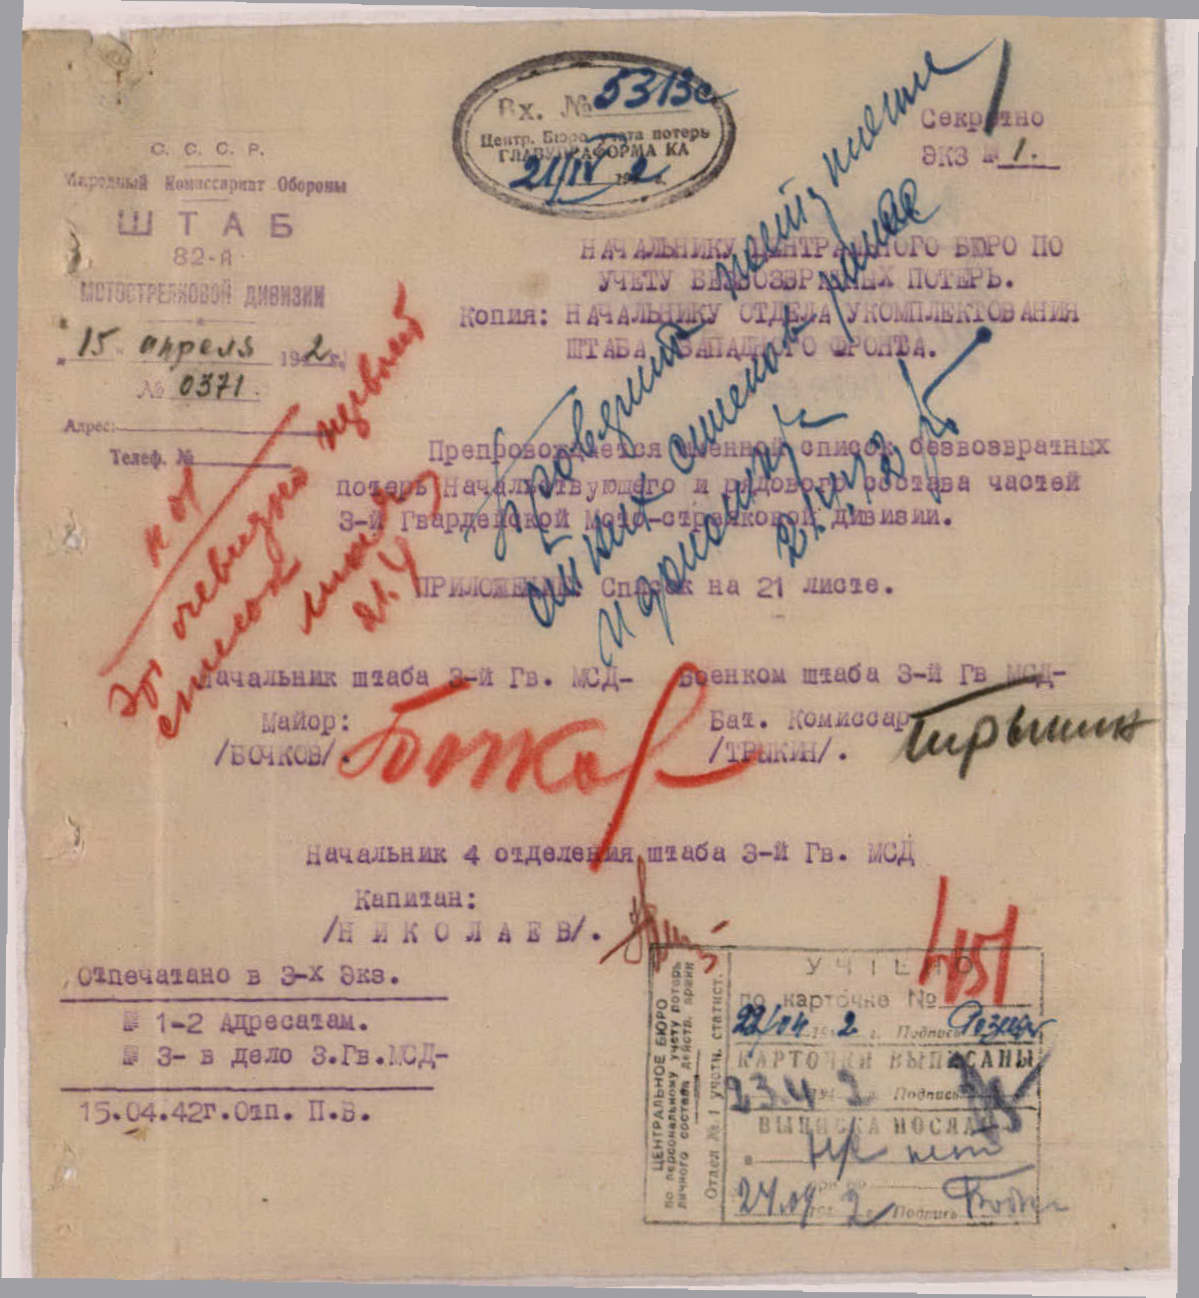 Вх. № 5313с
Центр. Бюро учета потерь
ГЛАВУПРАФОРМА КА
21/IV 1942
Секретно
экз № 1.
С. С. С. Р.
Народный Комиссариат Обороны
ШТАБ
82-й
МОТОСТРЕЛКОВОЙ ДИВИЗИИ
"15" апреля 1942 г.
№ 0371.
Адрес:
Телеф. №
НАЧАЛЬНИКУ ЦЕНТРАЛЬНОГО БЮРО ПО
УЧЕТУ БЕЗВОЗВРАТНЫХ ПОТЕРЬ.
Копия: НАЧАЛЬНИКУ ОТДЕЛА УКОМПЛЕКТОВАНИЯ
ШТАБА ЗАПАДНОГО ФРОНТА.
Препровождается именной список безвозвратных
потерь Начальствующего и рядового состава частей
3-й Гвардейской Мото-стрелковой дивизии.
ПРИЛОЖЕНИЕ: Список на 21 листе.
Это очевидно первый
список
21.4
Проверить
списков ранее
Начальник штаба 3-й Гв. МСД-
Майор:
/БОЧКОВ/.
Военком штаба 3-й Гв МСД-
Бат. Комиссар
/ТРЫКИН/.
Начальник 4 отделения штаба 3-й Гв. МСД
Капитан:
/Н И К О Л А Е В/.
Отпечатано в 3-х Экз.
№ 1-2 Адресатам.
№ 3- в дело 3.Гв.МСД-
15.04.42г.Отп. П.В.
ЦЕНТРАЛЬНОЕ БЮРО
по персональному учету потерь
личного состава действ. армии
Отдел № 1 учетн. статист.
УЧТЕНО
по карточке № 451
22/04 1942 г. Подпись
КАРТОЧКИ ВЫПИСАНЫ
23.4 1942 г. Подпись
ВЫПИСКА ПОСЛАНА
в н/к нет
24.04 1942 г. Подпись